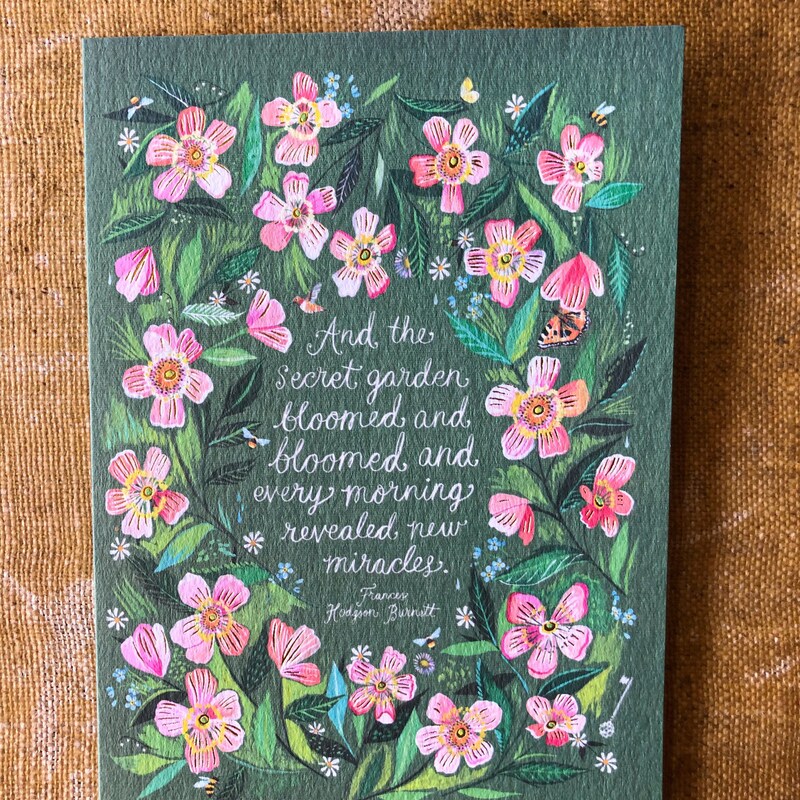 And the
secret garden
bloomed and
bloomed and
every morning
revealed new
miracles.
Frances
Hodgson Burnett